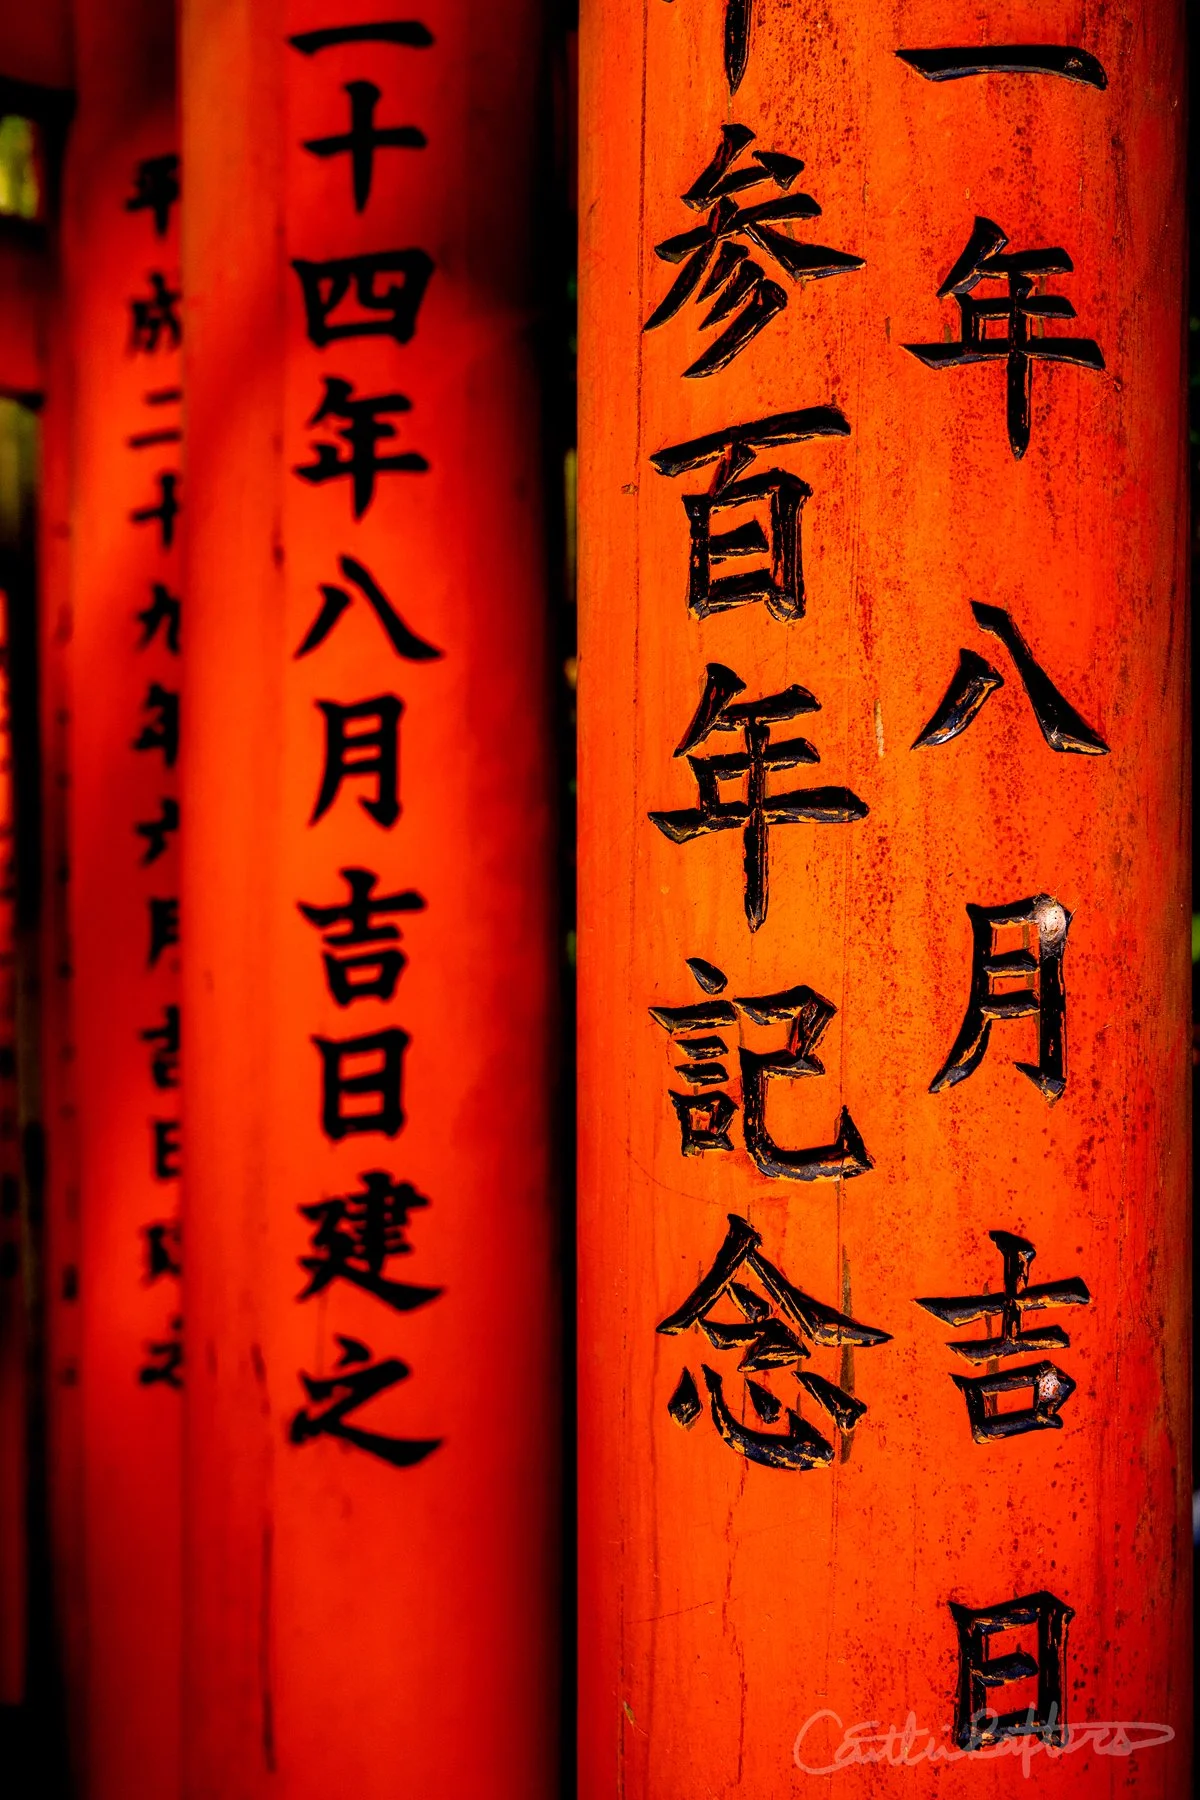 一年八月吉日
参百年記念
一十四年八月吉日建之
平成二十九年六月吉日建之
Caitlin Rafters